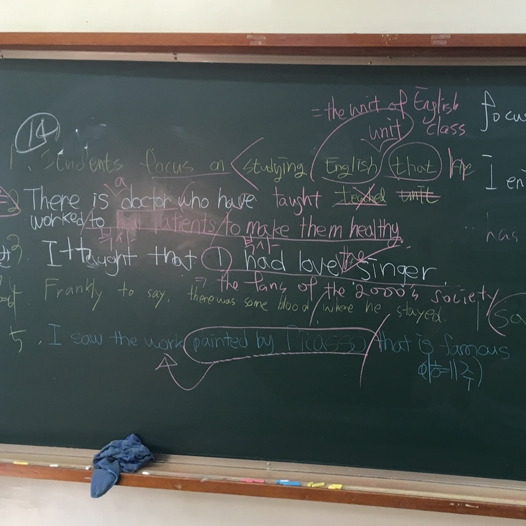 = the unit of English class
unit
focus
14
1. Students focus on studying English that he
I en
a
There is doctor who have taught unit
worked to Patients to make them healthy.
has
2. I thought that I had love singer.
the fans of the 2000's society
Frankly to say, there was some blood where he stayed
5. I saw the work painted by Picasso that is famous